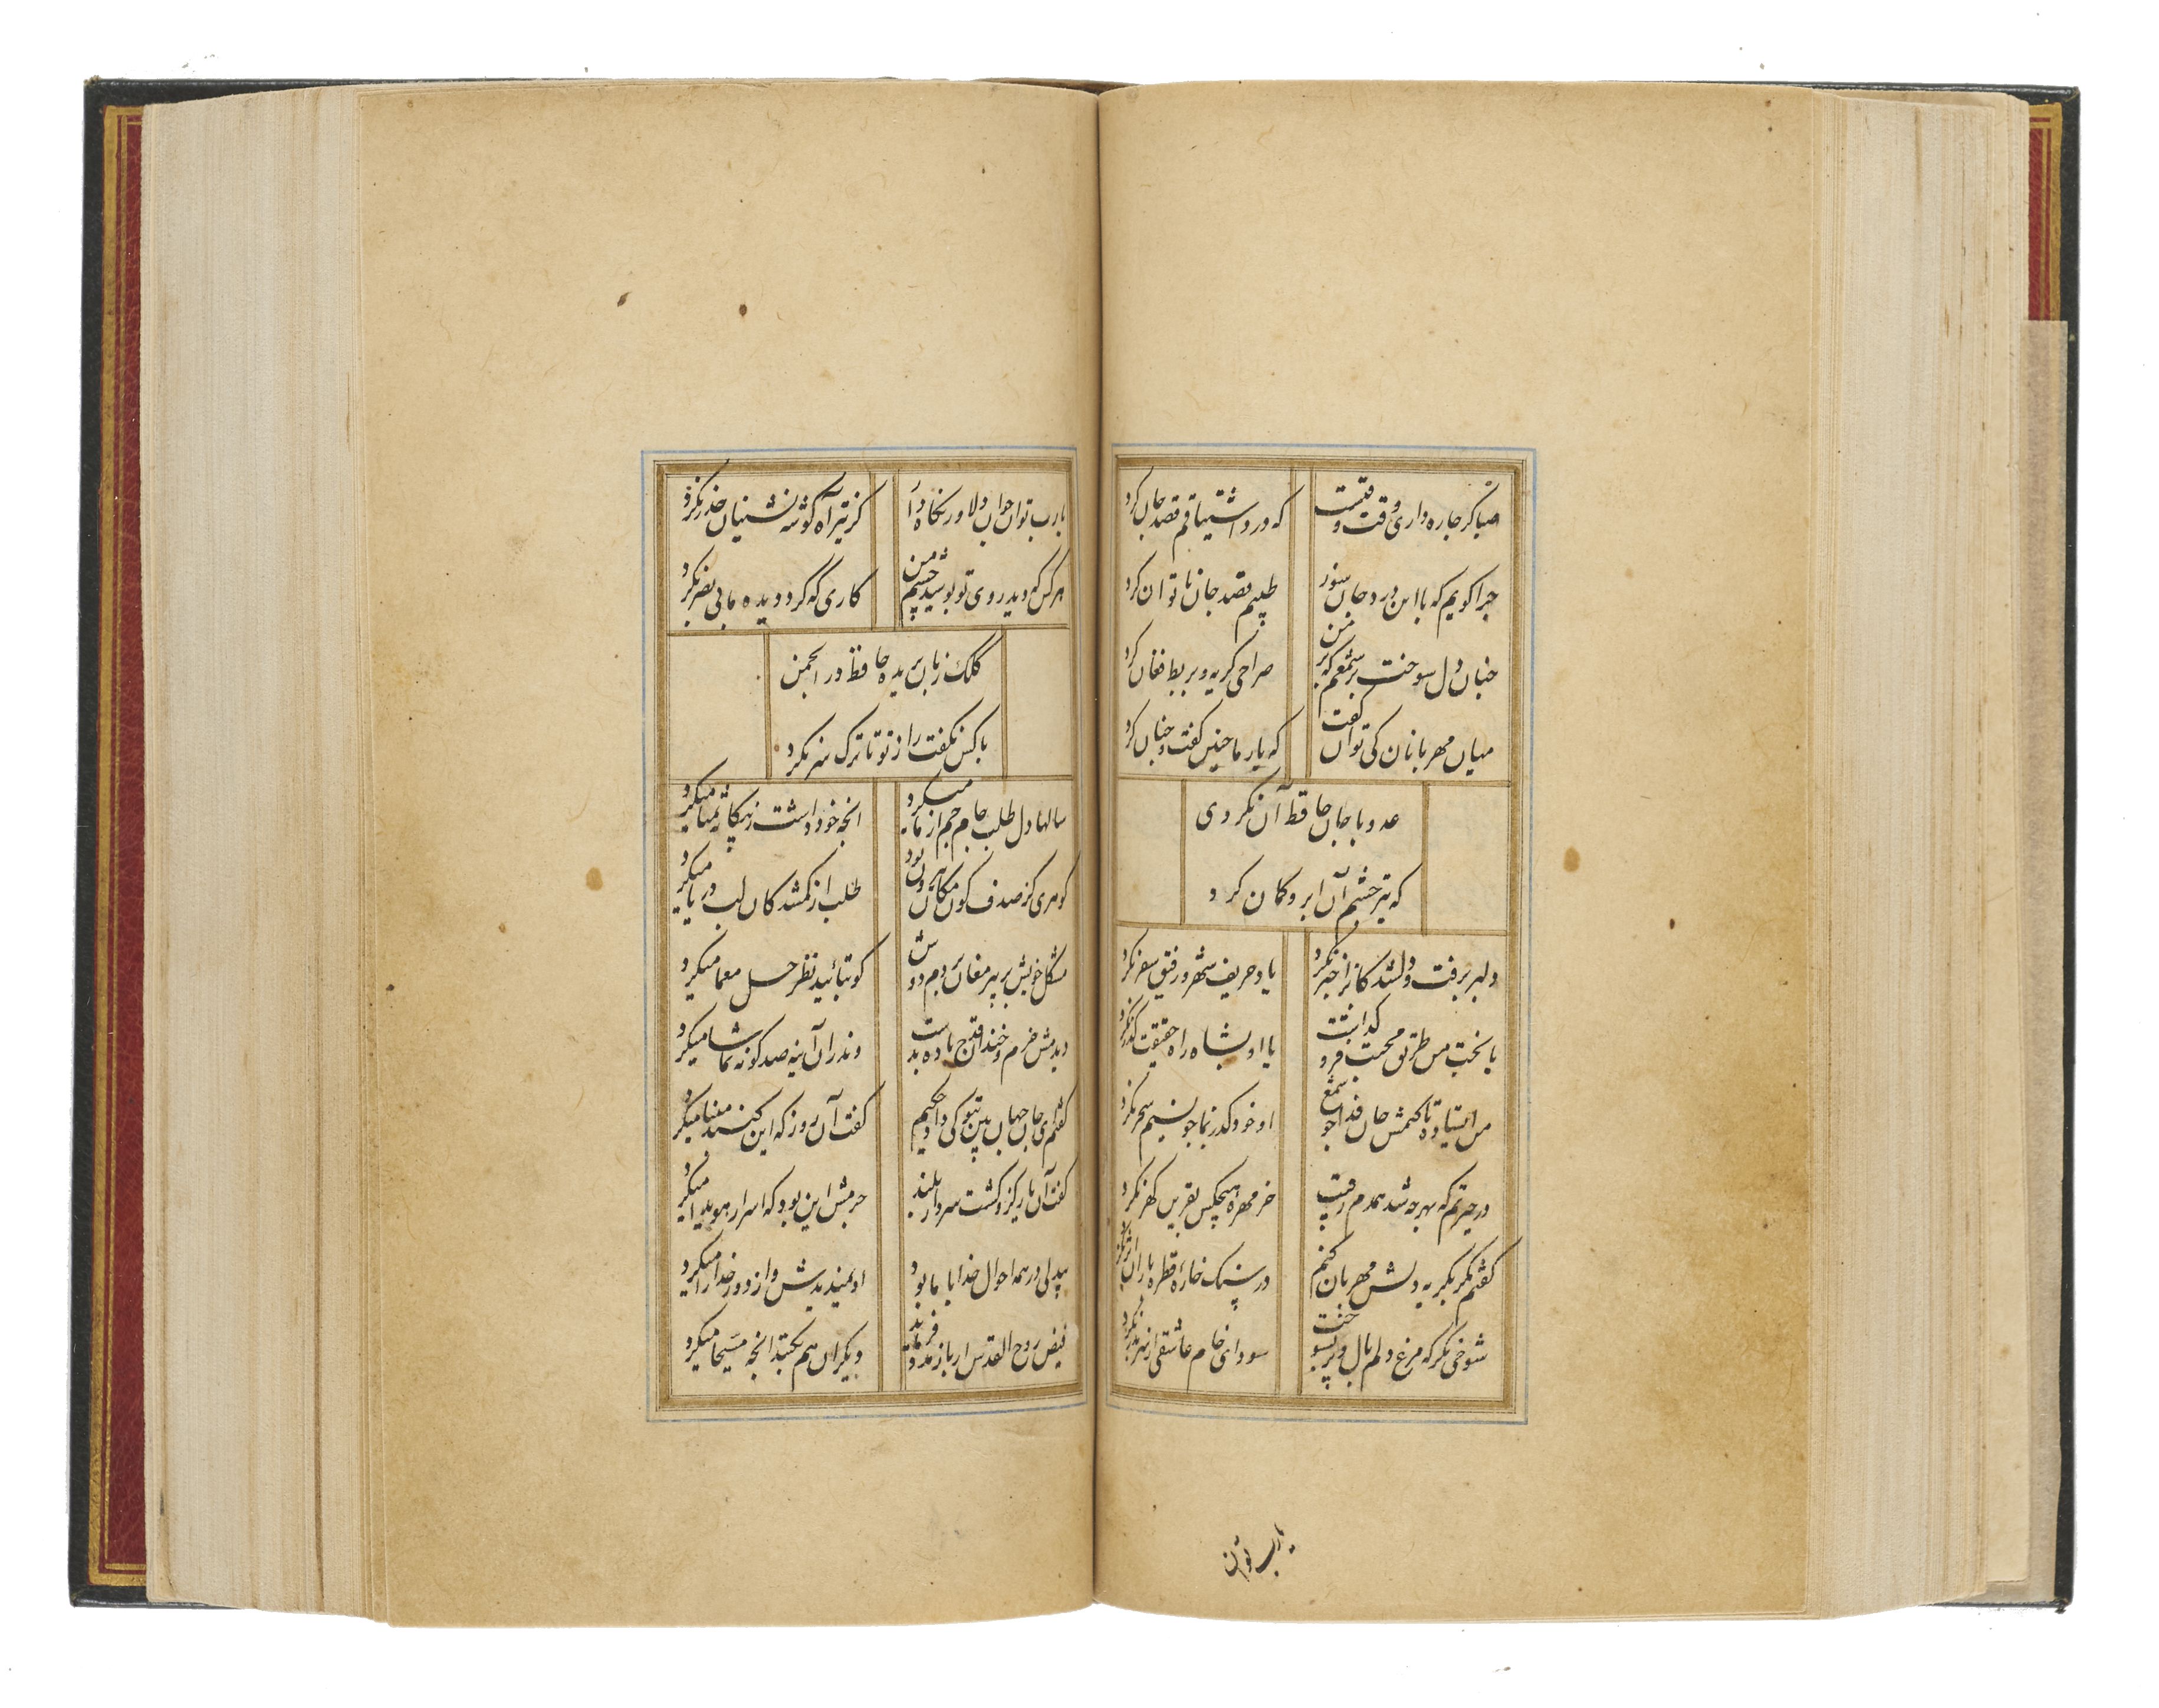 صبا گر چاره داری وقت وقتست
که درد اشتیاقم قصد جان کرد
چرا گویم که با این درد جان سوز
طبیبم قصد جان ناتوان کرد
چنان دل سوخت بر شمعم که بر من
صراحی گریه و بربط فغان کرد
میان مهربانان کی توان گفت
که یار ما چنین گفت و چنان کرد
عدو با جان حافظ آن نکردی
که تیر چشم آن ابرو کمان کرد
دلبر برفت و دلشدگانرا خبر نکرد
یاد حریف شهر و رفیق سفر نکرد
یا بخت من طریق محبت فرو گذاشت
یا او بشاه راه حقیقت گذر نکرد
من ایستاده تا کنمش جان فدا چو شمع
او خود گذر بما چو نسیم سحر نکرد
در حیرتم که بهر چه شد همدم رقیب
خرمهره هیچکس بقرین گهر نکرد
گفتم مگر بگریه دلش مهربان کنم
در سنگ خاره قطره باران اثر نکرد
شوخی نگر که مرغ دلم بال و پر بسوخت
سودای خام عاشقی از سر بدر نکرد
یارب توان
یارب تو آن جوان دلاور نگاه دار
کز تیر آه گوشه نشینان حذر نکرد
هر کس که دید روی تو بوسید چشم من
کاری که کرد دیده ما بی بصر نکرد
کلک زبان بریده حافظ در انجمن
با کس نگفت راز تو تا ترک سر نکرد
سالها دل طلب جام جم از ما میکرد
انچه خود داشت ز بیگانه تمنا میکرد
گوهری کز صدف کون و مکان بیرون بود
طلب از گمشدگان لب دریا میکرد
مشکل خویش بر پیر مغان بردم دوش
کو بتائید نظر حل معما میکرد
دیدمش خرم و خندان قدح باده بدست
وندران آینه صد گونه تماشا میکرد
گفتم ای جان جهان بین بتو کی داد حکیم
گفت آن روز که این گنبد مینا میکرد
گفت آن یار کزو گشت سر دار بلند
جرمش این بود که اسرار هویدا میکرد
بیدلی در همه احوال خدا با ما بود
او نمیدیدش و از دور خدا را میکرد
فیض روح القدس ار باز مدد فرماید
دیگران هم بکنند انچه مسیحا میکرد